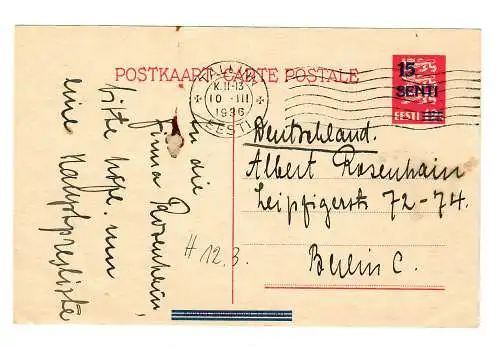 POSTKAART-CARTE POSTALE
TALLINN
K.11-13
10-III
1936
EESTI
15
SENTI
EESTI
Deutschland.
Albert Rosenhain
Leipzigerstr 72-74.
Berlin C.
An die
Firma Rosenhain,
bitte höfl. um
eine Hauptpreisliste
H 12.3.